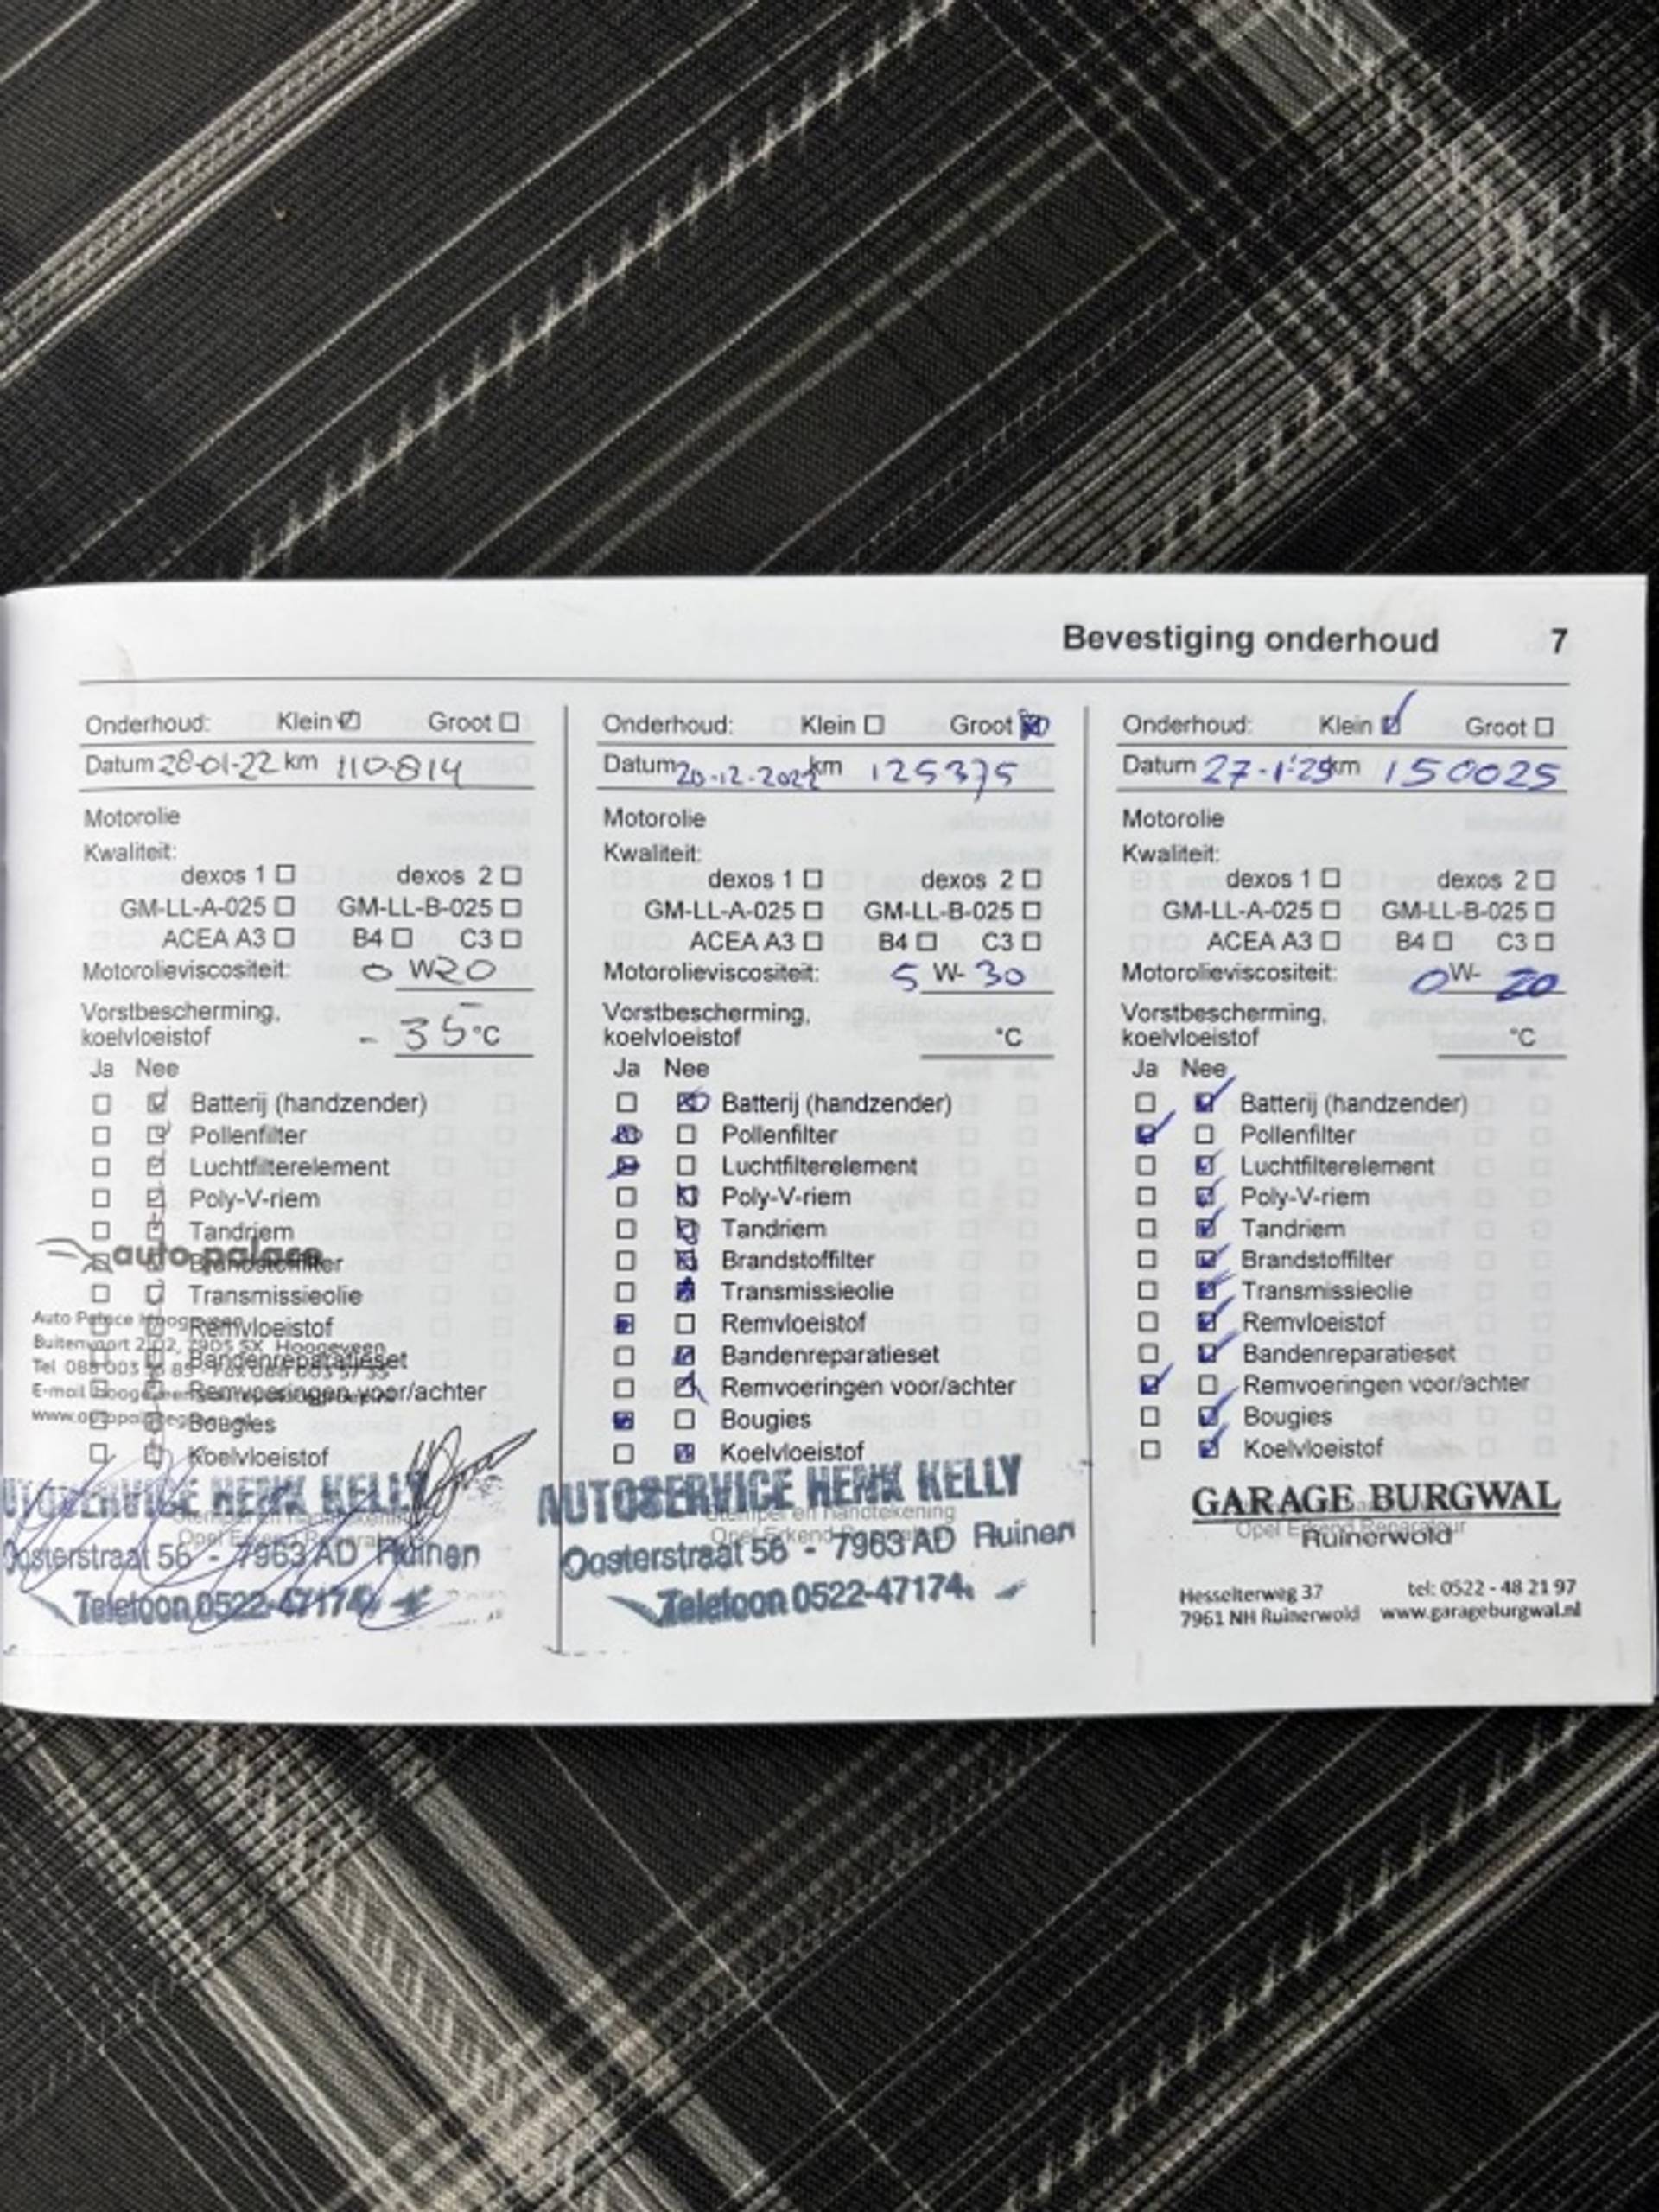 Bevestiging onderhoud 7
Onderhoud: Klein ☑ Groot ☐
Datum 28-01-22 km 110-814
Motorolie
Kwaliteit:
dexos 1 ☐ dexos 2 ☐
GM-LL-A-025 ☐ GM-LL-B-025 ☐
ACEA A3 ☐ B4 ☐ C3 ☐
Motorolieviscositeit: 0 W20
Vorstbescherming,
koelvloeistof - 35 °C
Ja Nee
☐ ☑ Batterij (handzender)
☐ ☑ Pollenfilter
☐ ☑ Luchtfilterelement
☐ ☑ Poly-V-riem
☐ ☑ Tandriem
auto palace
☐ ☑ Brandstoffilter
☐ ☑ Transmissieolie
Auto Palace Hoogeveen
☐ ☑ Remvloeistof
Buitenvaart 2102, 7905 SX Hoogeveen
☐ ☑ Bandenreparatieset
Tel 088 003
E-mail
☐ ☑ Remvoeringen voor/achter
☐ ☑ Bougies
☐ ☑ Koelvloeistof
AUTOSERVICE HENK KELLY
Stempel en handtekening
Opel Erkend Reparateur
Oosterstraat 56 - 7963 AD Ruinen
Telefoon 0522-47174
Onderhoud: Klein ☐ Groot ☒
Datum 20-12-2022 km 125375
Motorolie
Kwaliteit:
dexos 1 ☐ dexos 2 ☐
GM-LL-A-025 ☐ GM-LL-B-025 ☐
ACEA A3 ☐ B4 ☐ C3 ☐
Motorolieviscositeit: 5 W- 30
Vorstbescherming,
koelvloeistof °C
Ja Nee
☐ ☒ Batterij (handzender)
☒ ☐ Pollenfilter
☒ ☐ Luchtfilterelement
☐ ☒ Poly-V-riem
☐ ☒ Tandriem
☐ ☒ Brandstoffilter
☐ ☒ Transmissieolie
☒ ☐ Remvloeistof
☐ ☒ Bandenreparatieset
☐ ☒ Remvoeringen voor/achter
☒ ☐ Bougies
☐ ☒ Koelvloeistof
AUTOSERVICE HENK KELLY
Stempel en handtekening
Opel Erkend Reparateur
Oosterstraat 56 - 7963 AD Ruinen
Telefoon 0522-47174
Onderhoud: Klein ☑ Groot ☐
Datum 27-1-25 km 150025
Motorolie
Kwaliteit:
dexos 1 ☐ dexos 2 ☐
GM-LL-A-025 ☐ GM-LL-B-025 ☐
ACEA A3 ☐ B4 ☐ C3 ☐
Motorolieviscositeit: 0 W- 20
Vorstbescherming,
koelvloeistof °C
Ja Nee
☐ ☑ Batterij (handzender)
☑ ☐ Pollenfilter
☐ ☑ Luchtfilterelement
☐ ☑ Poly-V-riem
☐ ☑ Tandriem
☐ ☑ Brandstoffilter
☐ ☑ Transmissieolie
☐ ☑ Remvloeistof
☐ ☑ Bandenreparatieset
☑ ☐ Remvoeringen voor/achter
☐ ☑ Bougies
☐ ☑ Koelvloeistof
GARAGE BURGWAL
Opel Erkend Reparateur
Ruinerwold
Hesselterweg 37 tel: 0522 - 48 21 97
7961 NH Ruinerwold www.garageburgwal.nl